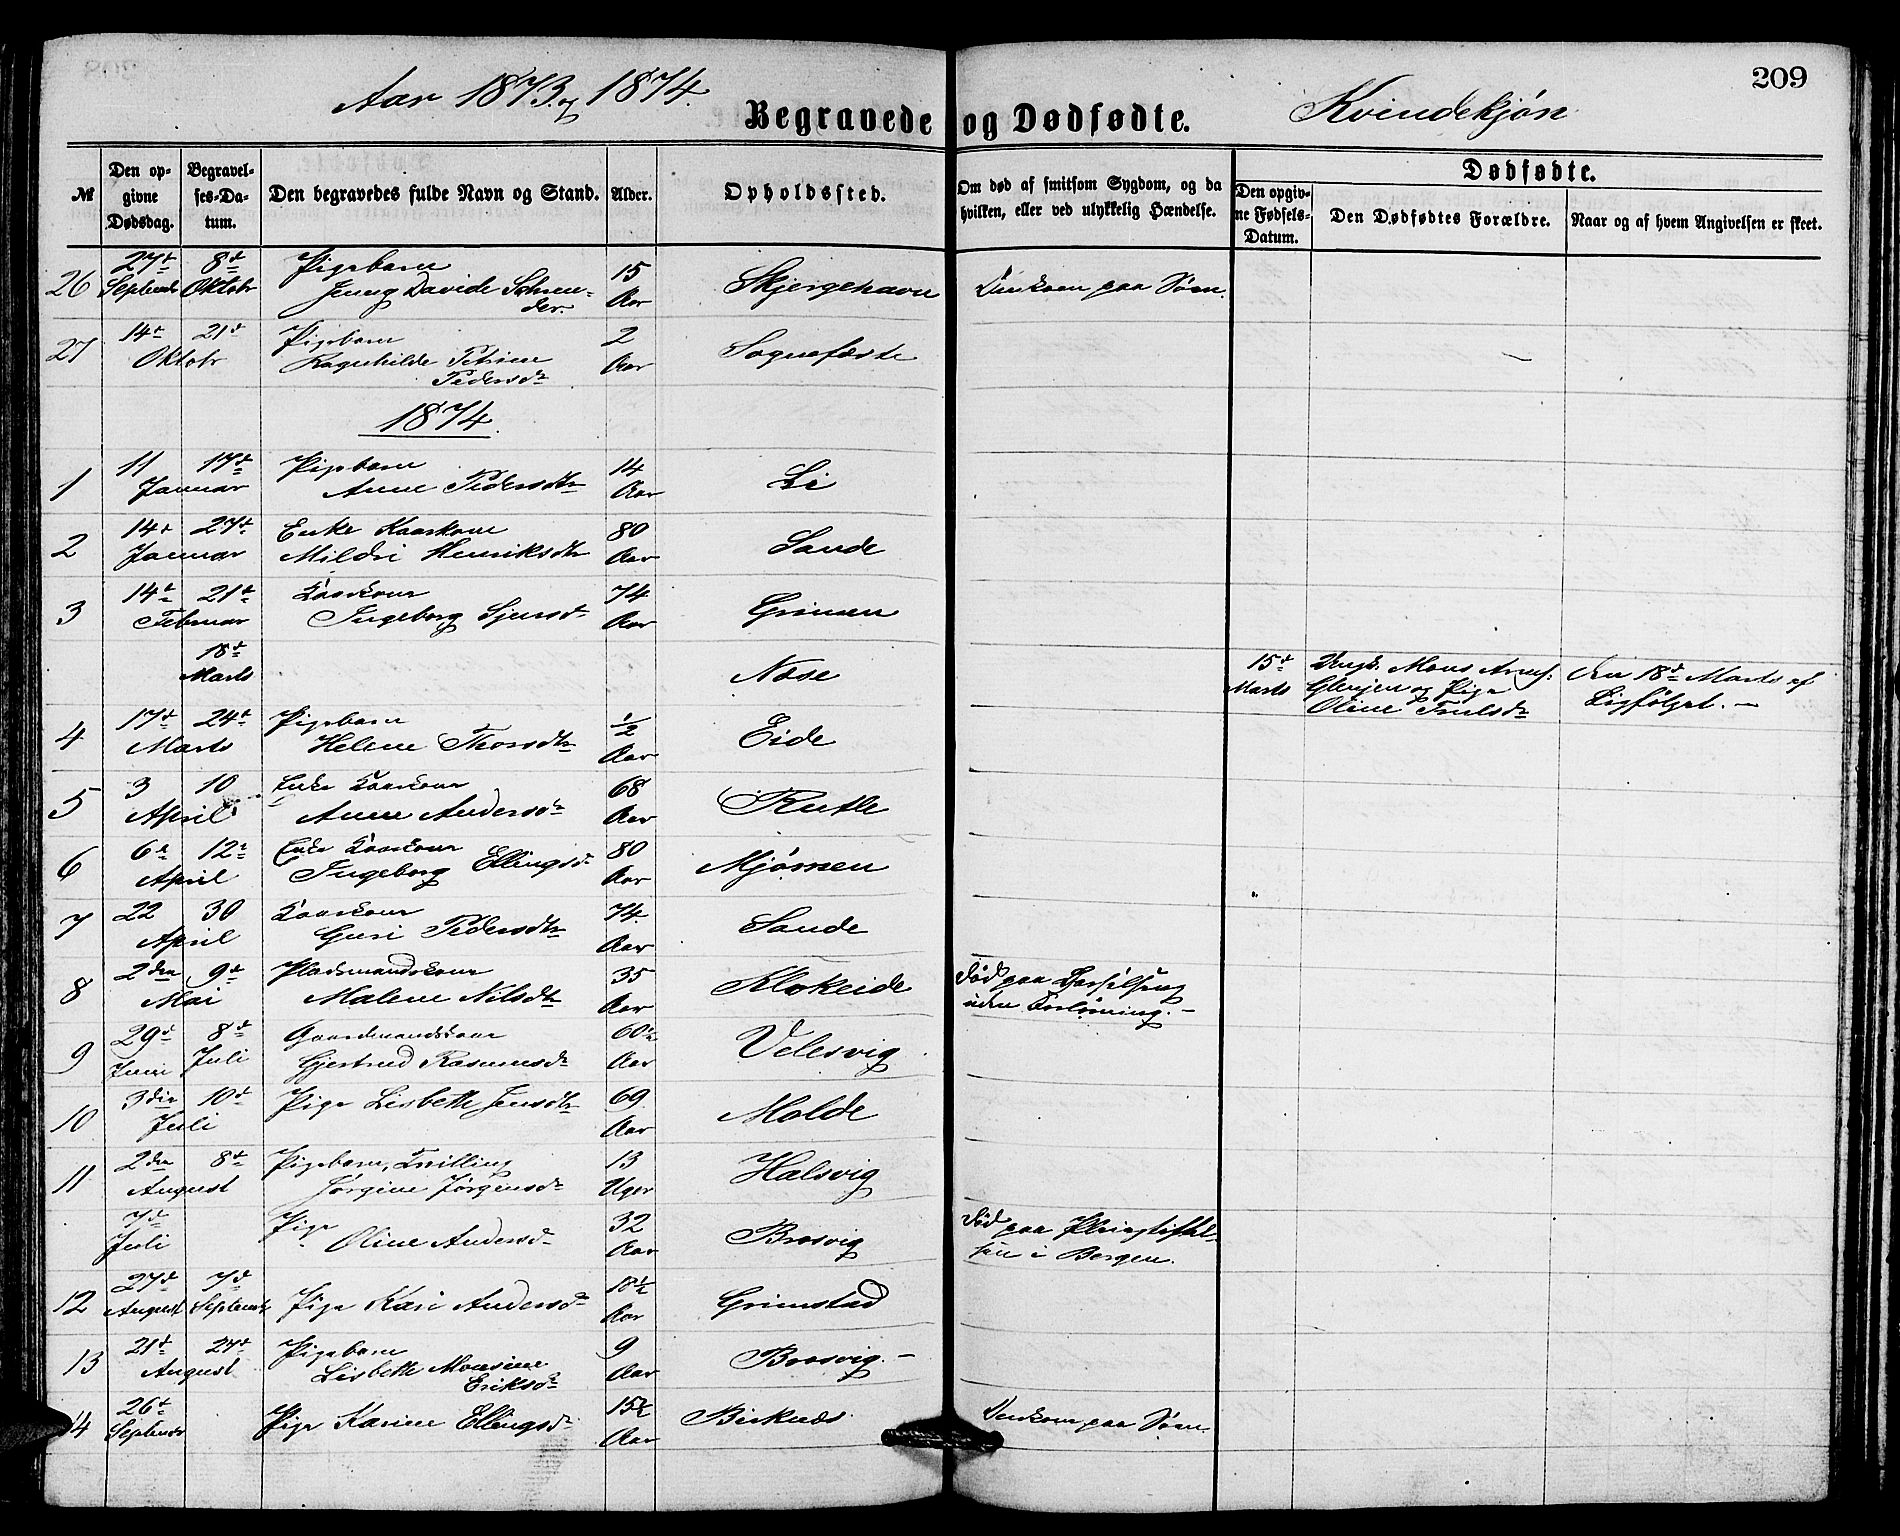 209
Aar 1873 og 1874.
Begravede og Dødfødte.
Kvindekjøn
No
Den opgivne Dødsdag.
Begravelses-Datum.
Den begravedes fulde Navn og Stand.
Alder.
Opholdssted.
Om død af smitsom Sygdom, og da hvilken, eller ved ulykkelig Hændelse.
Dødfødte.
Den opgivne Fødsels-Datum.
Den Dødfødtes Forældre.
Naar og af hvem Angivelsen er skeet.
26 27de Septembr 8de Oktobr Pigebarn Jenny Davide 15 Aar Skjergehavn Omkom paa Søen.
27 14de 21de Oktobr Pigebarn Ragnhilde Petrine Pedersdtr 2 Aar Sognefæste
1874
1 11 17de Januar Pigebarn Anne Pedersdtr 14 Aar Li
2 14de 27de Januar Enke Kaarkone Mildri Henriksdtr 80 Aar Sande
3 14de 21de Februar Kaarkone Ingeborg Sjursdr 74 Aar Grinen
18de Marts Nose 15de Marts Ungk. Mons Glenjen og Pige Oline Trulsdr den 18de Marts af Ligfølget. —
4 17de 24de Marts Pigebarn Helene Thorsdtr ½ Aar Eide
5 3 10 April Enke Kaarkone Anne Andersdr 68 Aar Rutle
6 6te 12te April Enke Kaarkone Ingeborg Ellingsdr 80 Aar Mjømen
7 22 30 April Kaarkone Guri Pedersdtr 74 Aar Sande
8 2den 9de Mai Pladsmandskone Malene Nilsdtr 35 Aar Klokeide Død paa Barselseng uden Forløsning. —
9 29de Juni 8de Juli Gaardmandskone Gjertrud Rasmusdr 60½ Aar Velesvig
10 3die 10de Juli Pige Lisbeth Jensdtr 69 Aar Molde
11 2den 8de August Pigebarn, Tvilling Jørgine Jørgensdr 13 Uger Halsvig
7de Juli Pige Oline Andersdr 32 Aar Brosvig Død paa Pleiestiftelsen i Bergen.
12 27de August 7de Septembr Pige Kari Andersdr 18½ Aar Grimstad
13 21de 24de August Pigebarn Lisbeth Monsine Eriksdr 9 Aar Brosvig. —
14 26de Septembr Pige Karine Ellingsdr 15½ Aar Birknes Omkom paa Søen.